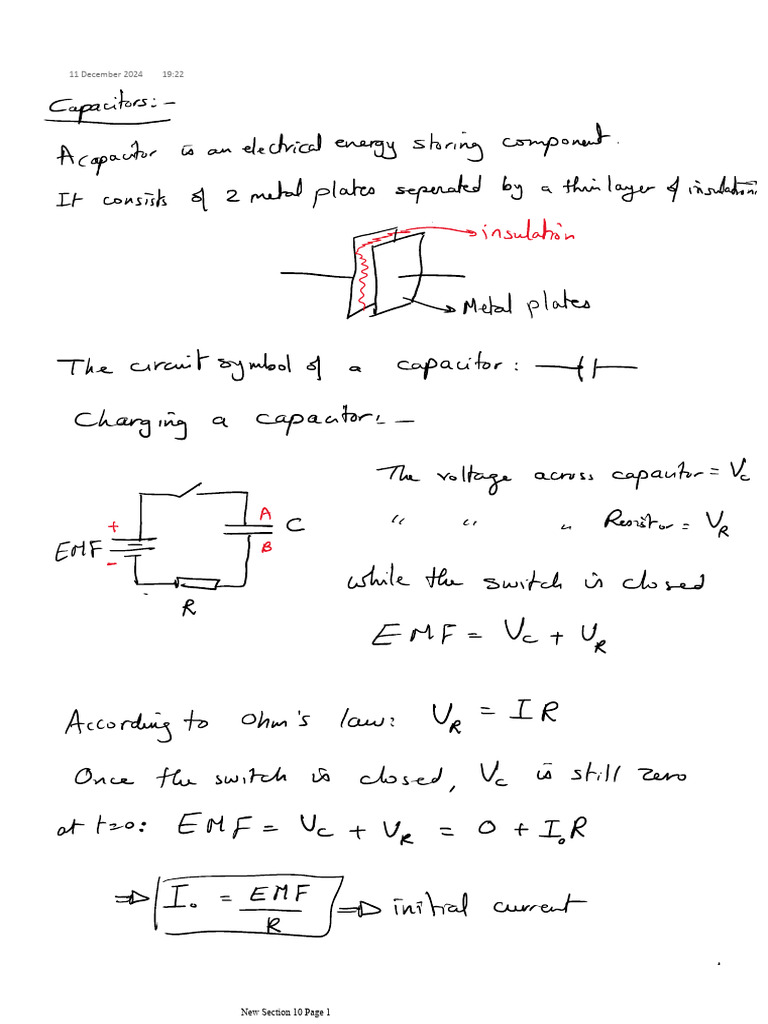 11 December 2024 19:22
Capacitors:-
A capacitor is an electrical energy storing component.
It consists of 2 metal plates seperated by a thin layer of insulation.
insulation
Metal plates
The circuit symbol of a capacitor:
Charging a capacitor:-
The voltage across capacitor = Vc
" " " Resistor = VR
A
C
+
EMF
B
-
R
while the switch is closed
EMF = Vc + VR
According to Ohm's law: VR = IR
Once the switch is closed, Vc is still zero
at t=0: EMF = Vc + VR = 0 + I₀R
⇒ I₀ = EMF/R ⇒ initial current
New Section 10 Page 1